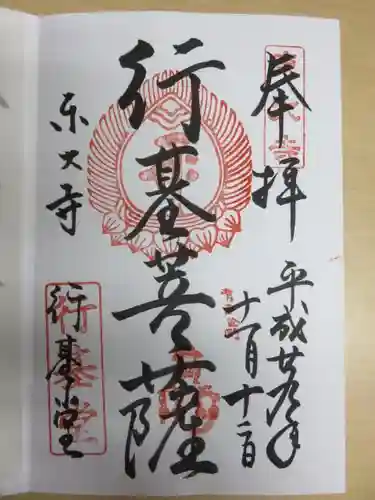 奉拝
平成廿九年
十一月十二日
行基菩薩
東大寺
行基堂